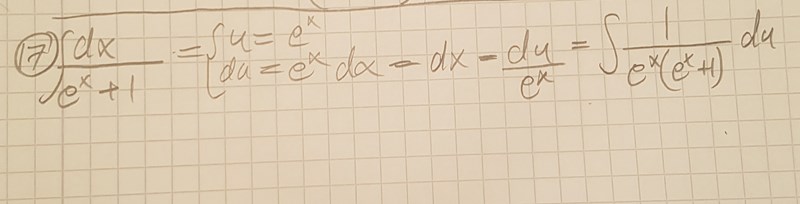 ⑰ ∫ dx / (e^x + 1) = { u = e^x ; du = e^x dx – dx – du / e^x = ∫ 1 / (e^x (e^x + 1)) du